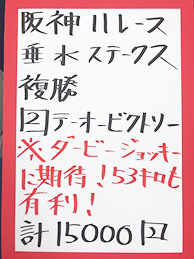 阪神11レース
垂水ステークス
複勝
2テーオービクトリー
※ダービージョッキー
に期待！53キロも
有利！
計15000円